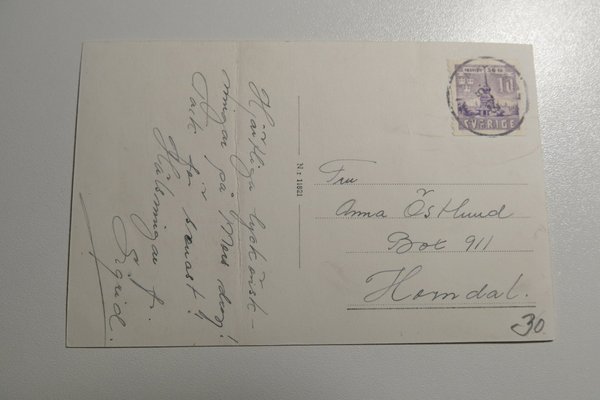 Hjärtliga lyckönsk-
ningar på Mors dag!
Tack för senast!
Hälsningar
Sigrid.
Nr 11821
10
SVERIGE
Fru
Anna Östlund
Box 911
Horndal.
30